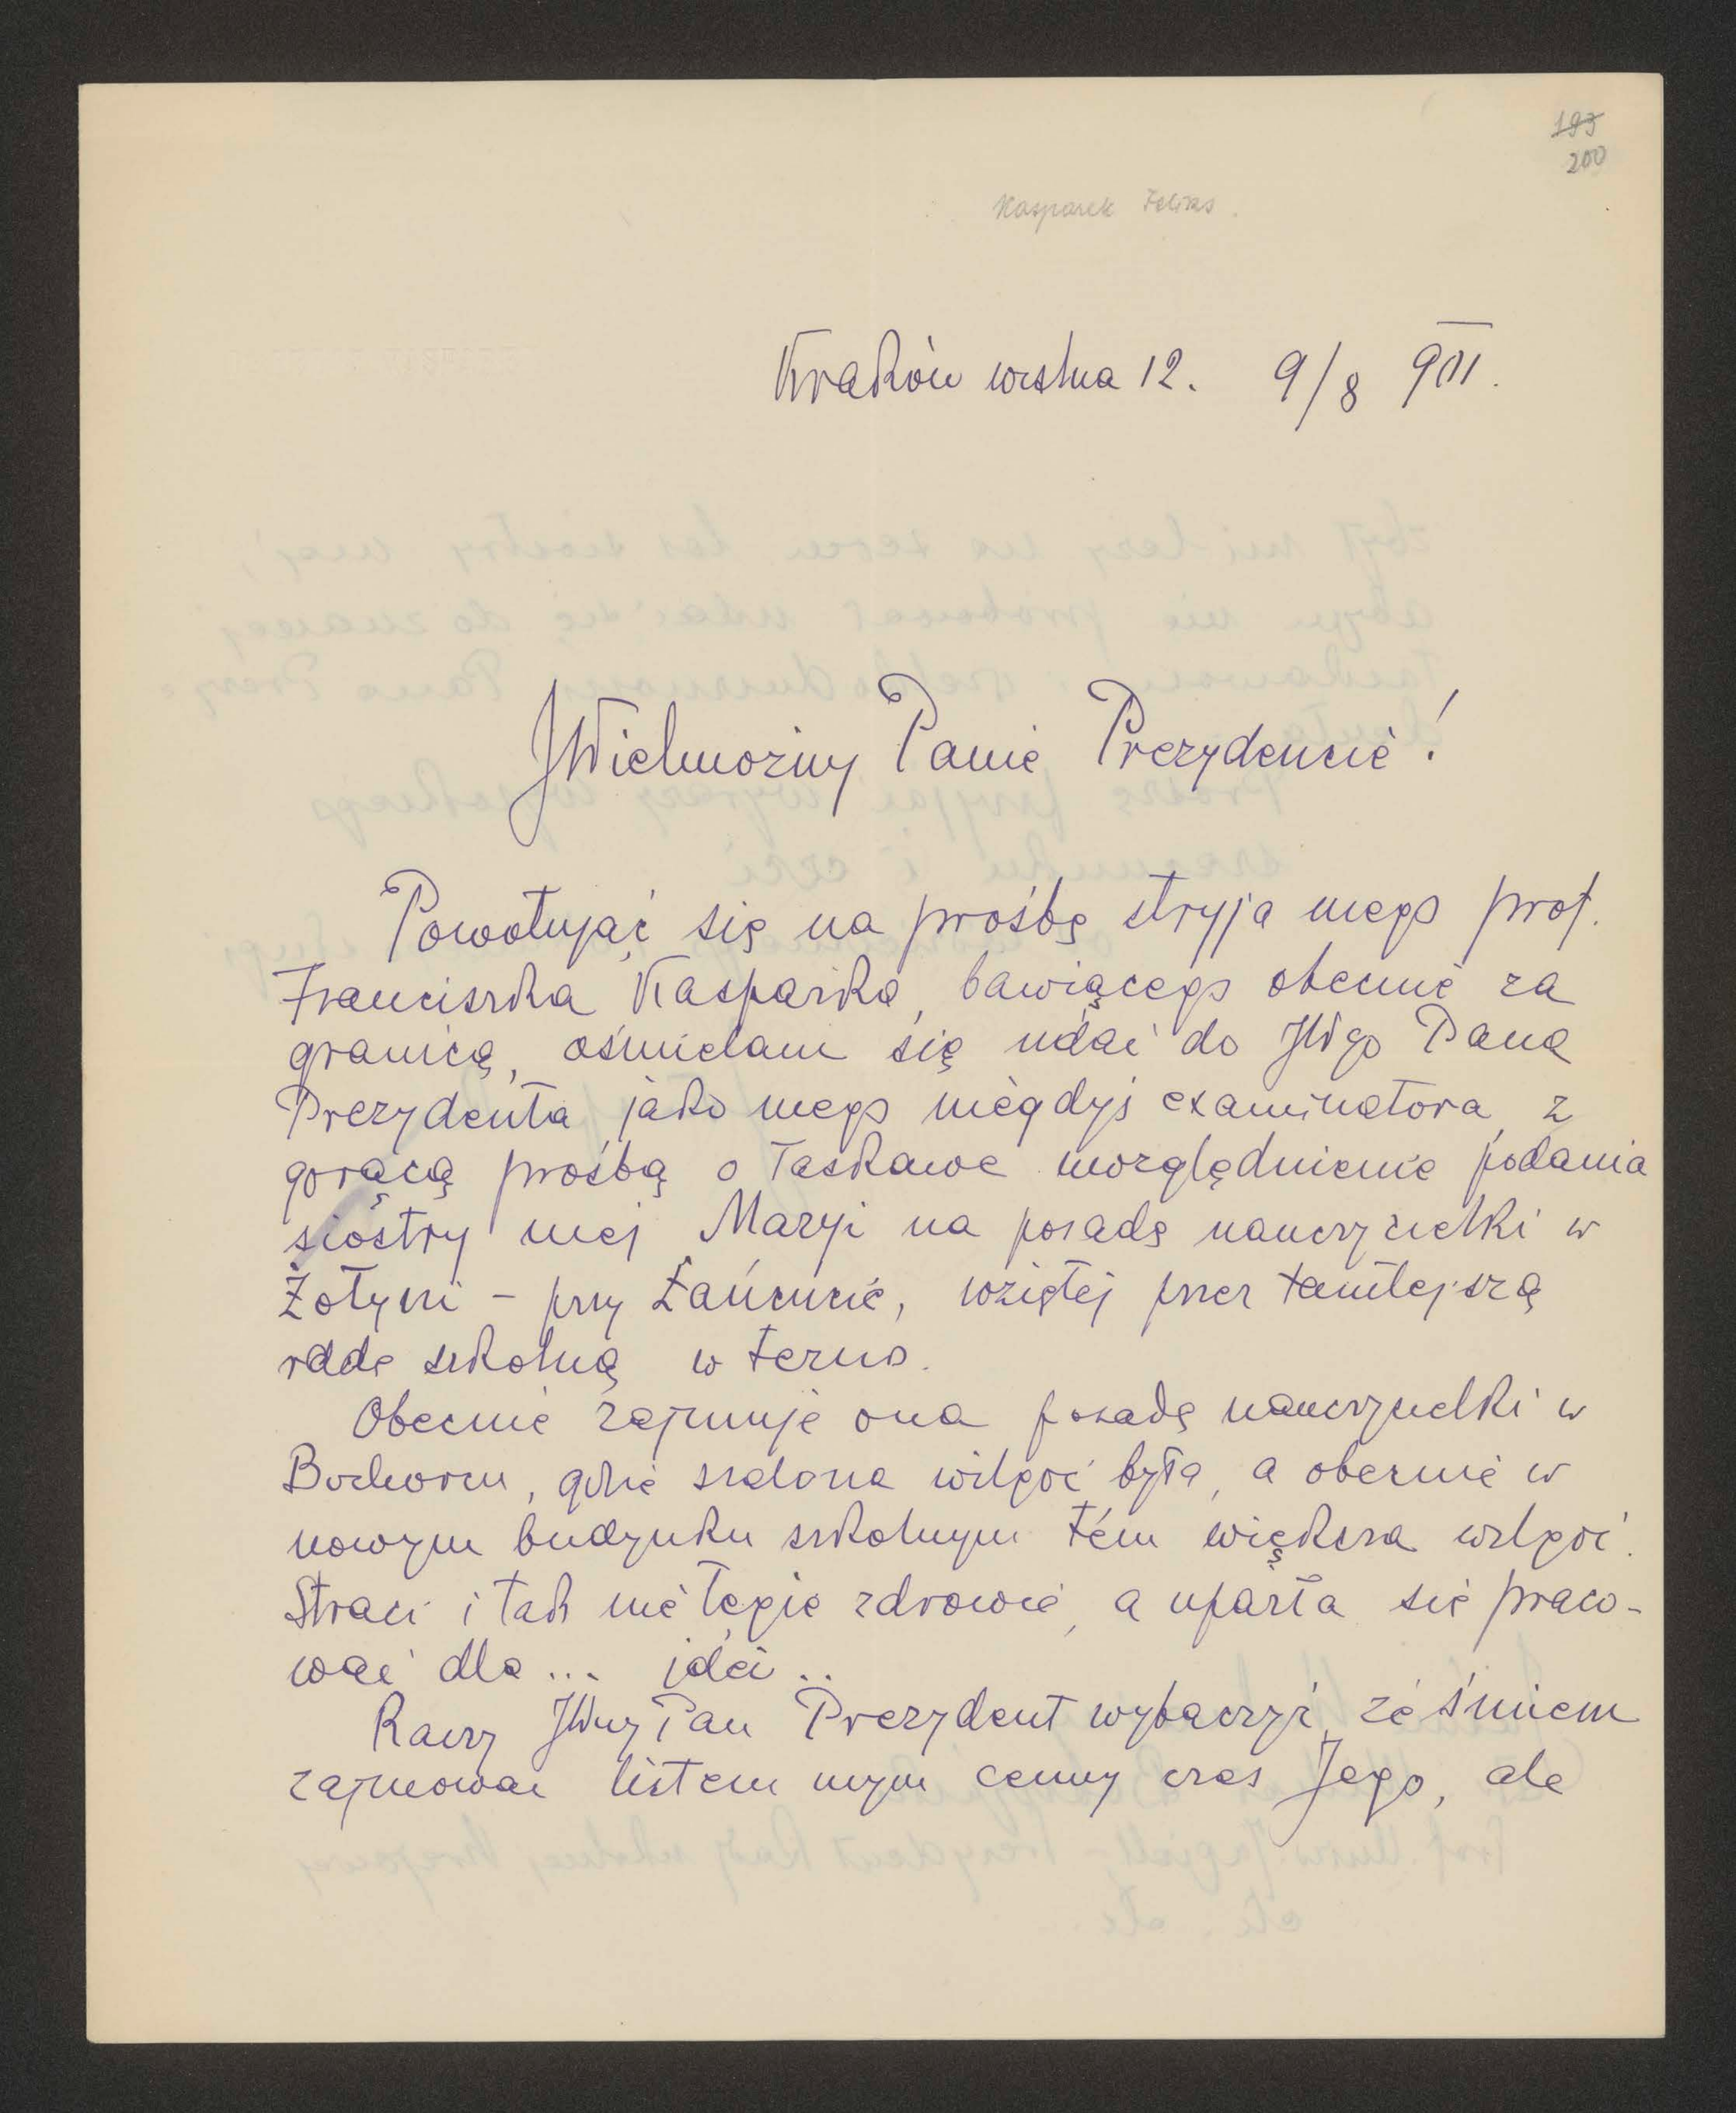 193
200
Kasparek Feliks.
Kraków wiślna 12. 9/8 901.
JWielmożny Panie Prezydencie!
Powołując się na prośbę stryja mego prof.
Franciszka Kasparka, bawiącego obecnie za
granicą, ośmielam się udać do JWgo Pana
Prezydenta jako mego niegdyś examinatora, z
gorącą prośbą o łaskawe uwzględnienie podania
siostry mej Maryi na posadę nauczycielki w
Żołyni – przy Łańcucie, wziętej przez tamtejszą
radę szkolną w terno.
Obecnie zajmuje ona posadę nauczycielki w
gdzie szalona wilgoć była, a obecnie w
nowym budynku szkolnym tém większa wilgoć.
Straci i tak nie tęgie zdrowie, a uparła się praco-
wać dla ... idei ..
Raczy JWny Pan Prezydent wybaczyć, że śmiem
zajmować listem mym cenny czas Jego, ale